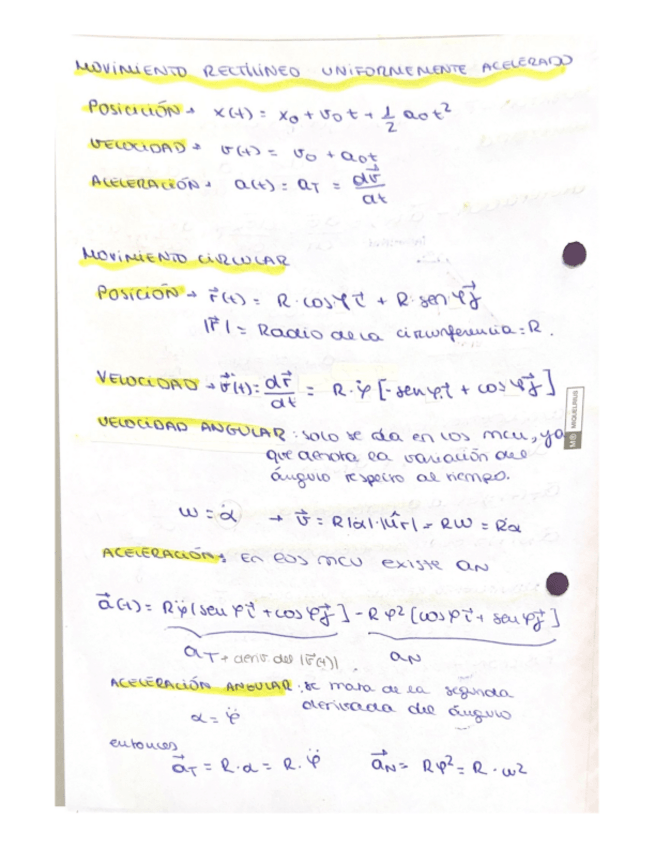 MOVIMIENTO RECTILINEO UNIFORMEMENTE ACELERADO
POSICIÓN → x(t) = x₀ + v₀t + 1/2 a₀t²
VELOCIDAD → v(t) = v₀ + a₀t
ACELERACIÓN → a(t) = a_T = dv⃗/dt
MOVIMIENTO CIRCULAR
POSICIÓN → r⃗(t) = R·cosφ i⃗ + R·senφ j⃗
|r⃗| = Radio de la circunferencia = R.
VELOCIDAD → v⃗(t) = dr⃗/dt = R·φ̇ [-senφ i⃗ + cosφ j⃗]
VELOCIDAD ANGULAR: solo se da en los mcu, ya
que denota la variación del
ángulo respecto al tiempo.
MIQUELRIUS
ω = α̇ → v⃗ = R|α̇|·|ûr| = Rω = Rα̇
ACELERACIÓN: En los MCU existe aN
a⃗(t) = Rφ̈(senφ i⃗ + cosφ j⃗] - Rφ²[cosφ i⃗ + senφ j⃗]
aT → deriv. del |v⃗(t)| aN
ACELERACIÓN ANGULAR: se trata de la segunda
derivada del ángulo
α = φ̈
entonces
a⃗T = R·α = R·φ̈ a⃗N = Rφ² = R·ω²